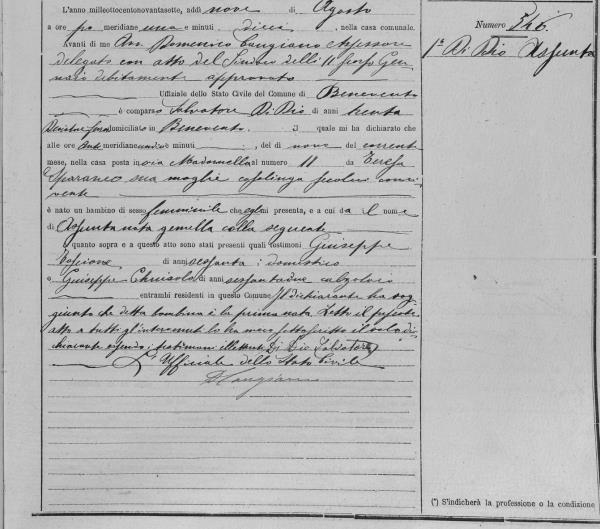 L'anno milleottocentonovantasette, addì nove di Agosto
a ore pomeridiane una e minuti dieci, nella casa comunale.
Avanti di me Domenico Cangiano Assessore
delegato con atto del Sindaco delli 11 scorso Gen
naio debitamente approvato
Uffiziale dello Stato Civile del Comune di Benevento
è comparso Salvatore Di Dio di anni trenta
domiciliato in Benevento quale mi ha dichiarato che
alle ore meridiane undici e minuti del dì nove del corrente
mese, nella casa posta in via Madonnella al numero 11 da Teresa
Sparaneo sua moglie casalinga seco lui convi
vente
è nato un bambino di sesso femminile che egli mi presenta, e a cui dà il nome
di Assunta nata gemella colla seguente
quanto sopra e a questo atto sono stati presenti quali testimoni Giuseppe
di anni sessanta domestico
e Giuseppe di anni sessantadue calzolaio
entrambi residenti in questo Comune Il dichiarante ha sog
giunto che detta bambina è la prima nata. Letto il presente
atto a tutti gl'intervenuti lo ha meco sottoscritto il solo di
chiarante essendo i testimoni illetterati Di Dio Salvatore
L'Uffiziale dello Stato Civile
DCangiano
Numero 546.
1ª Di Dio Assunta
(*) S'indicherà la professione o la condizione